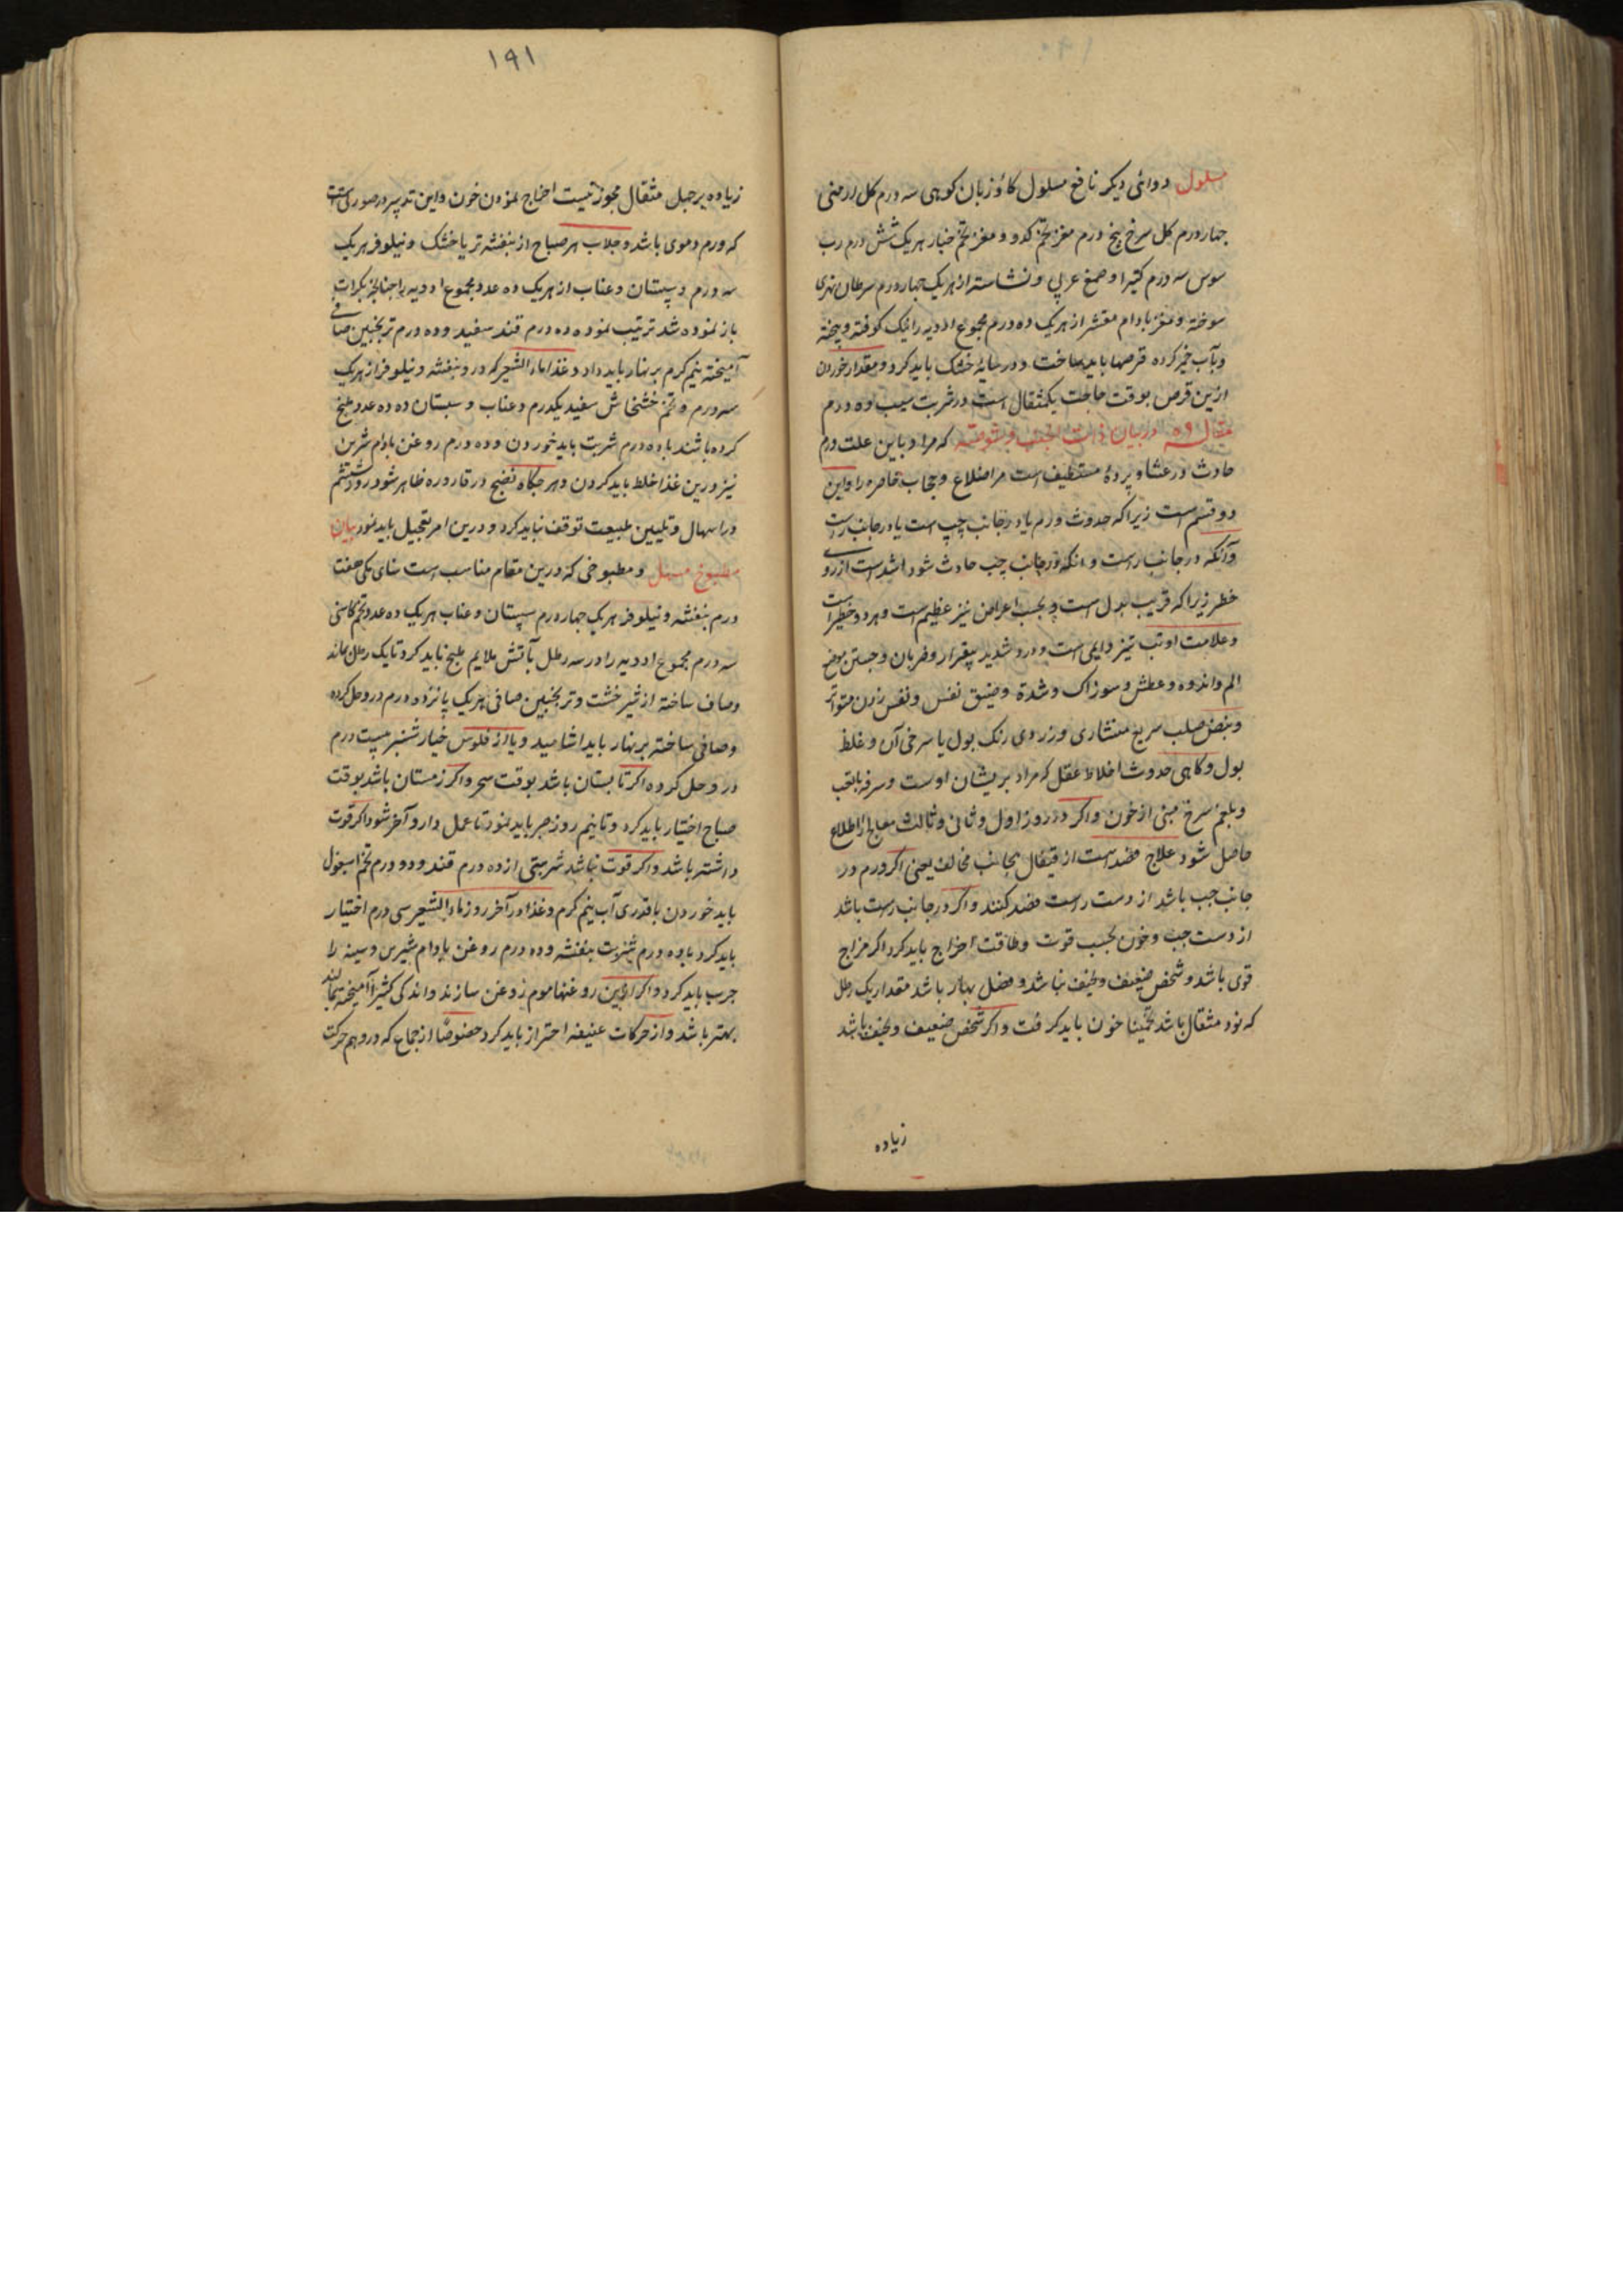 مسلول دوائی دیکر نافع مسلول کاوزبان کوهی سه درم کل ارمنی
چهار درم کل سرخ پنج درم مغز تخم کدو و مغز تخم خیار هریک شش درم رب
سوس سه درم کتیرا و صمغ عربی و نشاسته از هریک چهار درم سرطان نهری
سوخته و مغز بادام مقشر از هریک ده درم مجموع ادویه را نیک کوفته و بیخته
و بآب خمیر کرده قرصها باید ساخت و در سایه خشک باید کرد و مقدار خوردن
ازین قرص بوقت حاجت یکمثقال است در شربت سیب ده درم
مقاله ۵۹ در بیان ذات الجنب و شوصه که مراد باین علت ورم
حادث در غشا و پردۀ مستبطن است مر اضلاع و حجاب حاجز را و این
دو قسم است زیراکه حدوث ورم یا در جانب چپ است یا در جانب راست
و آنکه در جانب راست و انکه در جانب چب حادث شود اشد است از روی
خطر زیراکه قریب بدل است و بحسب اعراض نیز عظیم است و هر دو خطیر است
و علامت او تب تیز دایمی است و درد شدید بیقرار و ضربان و جستن موضع
الم و اندوه و عطش و سوزاک و شدة و ضیق نفس و نفس زدن متواتر
و نبض صلب سریع منشاری و زردی رنک بول یا سرخی آن و غلظ
بول و کاهی حدوث اختلاط عقل که مراد پریشان اوست و سرفه با تعب
و بلغم سرخ مبنی از خون و اکر در روز اول و ثانی و ثالث معالج را اطلاع
حاصل شود علاج فصد است از قیفال بجانب مخالف یعنی اکر ورم در
جانب چب باشد از دست راست فصد کنند و اکر در جانب راست باشد
از دست چب و خون بحسب قوت و طاقت اخراج باید کرد اکر مزاج
قوی باشد و شخص ضعیف و نحیف نباشد و فصل بهار باشد مقدار یک رطل
که نود مثقال باشد تخمینا خون باید کرفت و اکر شخص ضعیف و نحیف باشد
زیاده
۱۹۱
زیاده بر چهل مثقال مجوز نیست اخراج نمودن خون و این تدبیر در صورتیست
که ورم دموی باشد و جلاب هر صباح از بنفشه تر یا خشک و نیلوفر هریک
سه درم و سپستان و عناب از هریک ده عدد مجموع ادویه را چنانچه بکرات
باز نموده شد ترتیب نموده ده درم قند سفید و ده درم ترنجبین صافی
آمیخته نیم کرم بر نهار باید داد و غذا ماء الشعیر که درو بنفشه و نیلوفر از هریک
سه درم و تخم خشخاش سفید یکدرم و عناب و سپستان ده ده عدد طبخ
کرده باشند با ده درم شربت باید خوردن و ده درم روغن بادام شیرین
نیز درین غذا خلط باید کردن و هر چکاه نضج در قاروره ظاهر شود روز ششم
در اسهال و تلیین طبیعت توقف نباید کرد و درین امر تعجیل باید نمود بیان
مطبوخ مسهل و مطبوخی که درین مقام مناسب است سنای مکی هفت
درم بنفشه و نیلوفر هریک چهار درم سپستان و عناب هریک ده عدد تخم کاسنی
سه درم مجموع ادویه را در سه رطل بآتش ملایم طبخ باید کرد تا یک رطل بماند
و صاف ساخته از شیرخشت و ترنجبین صافی هریک پانزده درم درو حل کرده
و صافی ساخته بر نهار باید اشامید و یا از فلوس خیارشنبر بیست درم
درو حل کرده اکر تابستان باشد بوقت سحر و اکر زمستان باشد بوقت
صباح اختیار باید کرد و تا نیم روز صبر باید نمود تا عمل دارو آخر شود اکر قوت
داشته باشد و اکر قوت نباشد شربتی از ده درم قند و دو درم تخم اسبغول
باید خوردن با قدری آب نیم کرم و غذا در آخر روز ماء الشعیر سی درم اختیار
باید کرد با ده درم شربت بنفشه و ده درم روغن بادام شیرین و سینه را
چرب باید کرد و اکر ازین روغنها موم روغن سازند و اندکی کتیرا آمیخته بمالند
بهتر باشد و از حرکات عنیفه احتراز باید کرد خصوصا از جماع که درو هم حرکت